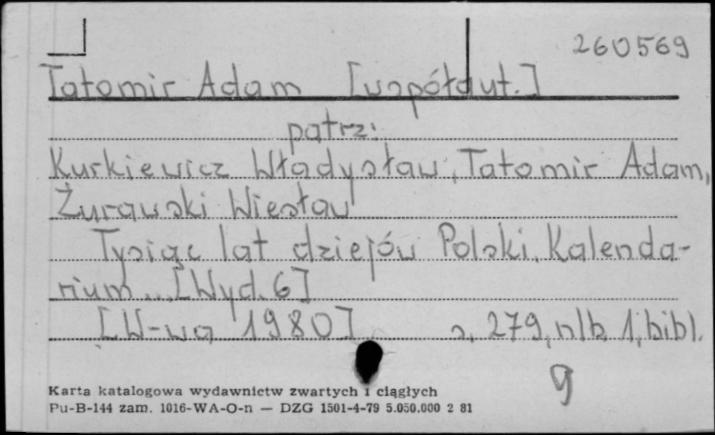 260569
Tatomir Adam [współaut.]
patrz:
Kurkiewicz Władysław, Tatomir Adam,
Żurawski Wiesław
Tysiąc lat dziejów Polski. Kalenda-
rium... [Wyd. 6]
[W-wa 1980] s. 279, nlb. 1, bibl.
9
Karta katalogowa wydawnictw zwartych i ciągłych
Pu-B-144 zam. 1016-WA-O-n — DZG 1501-4-79 5.050.000 2 81